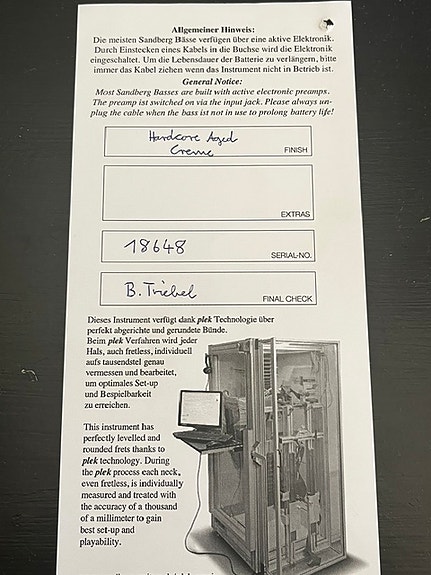 Allgemeiner Hinweis:
Die meisten Sandberg Bässe verfügen über eine aktive Elektronik.
Durch Einstecken eines Kabels in die Buchse wird die Elektronik
eingeschaltet. Um die Lebensdauer der Batterie zu verlängern, bitte
immer das Kabel ziehen wenn das Instrument nicht in Betrieb ist.
General Notice:
Most Sandberg Basses are built with active electronic preamps.
The preamp ist switched on via the input jack. Please always un-
plug the cable when the bass ist not in use to prolong battery life!
Hardcore Aged
Creme
FINISH
EXTRAS
18648
SERIAL-NO.
B. Triebel
FINAL CHECK
Dieses Instrument verfügt dank plek Technologie über
perfekt abgerichte und gerundete Bünde.
Beim plek Verfahren wird jeder
Hals, auch fretless, individuell
aufs tausendstel genau
vermessen und bearbeitet,
um optimales Set-up
und Bespielbarkeit
zu erreichen.
This instrument has
perfectly levelled and
rounded frets thanks to
plek technology. During
the plek process each neck,
even fretless, is individually
measured and treated with
the accuracy of a thousand
of a millimeter to gain
best set-up and
playability.